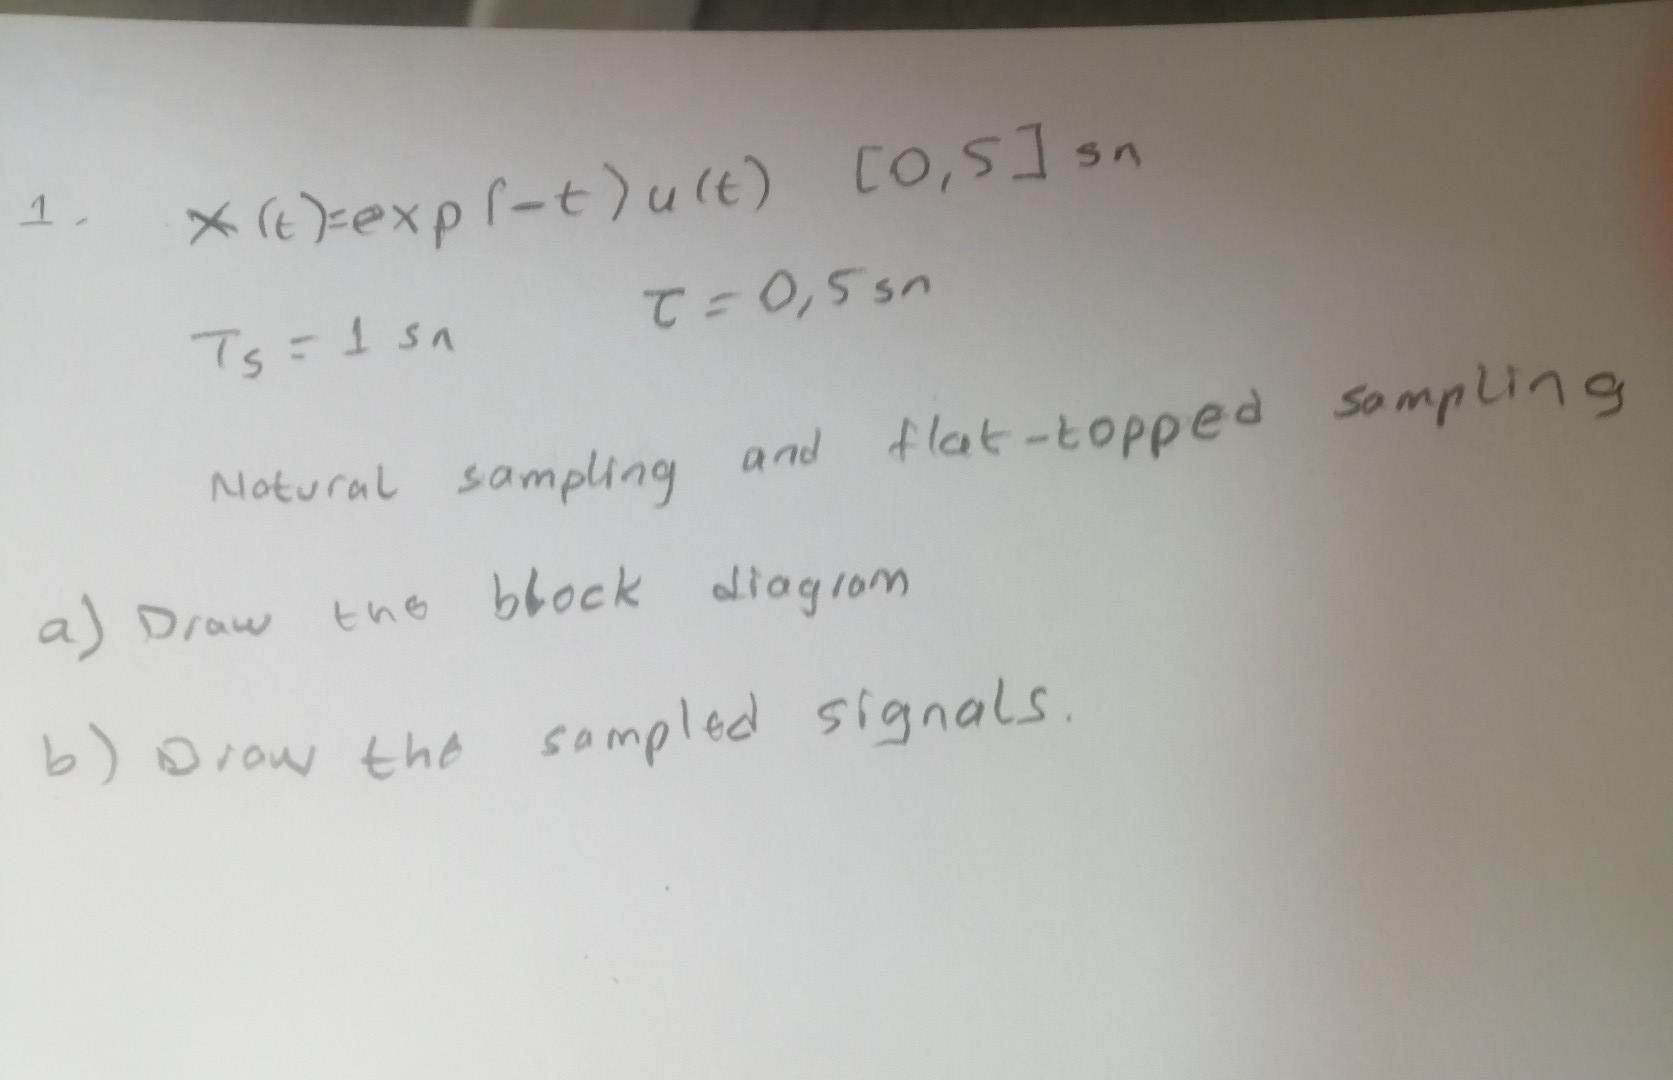 1. x(t)=exp(-t)u(t) [0,5] sn
Ts = 1 sn τ = 0,5 sn
Natural sampling and flat-topped sampling
a) Draw the block diagram
b) Draw the sampled signals.